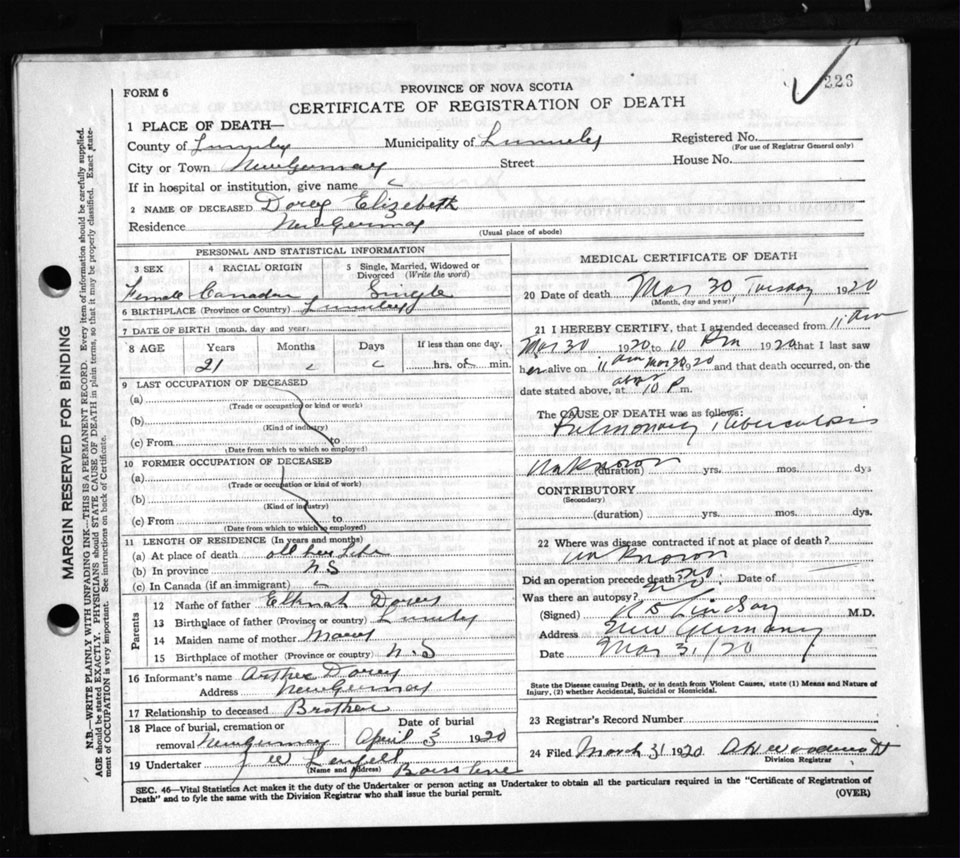 226
FORM 6
PROVINCE OF NOVA SCOTIA
CERTIFICATE OF REGISTRATION OF DEATH
1 PLACE OF DEATH—
County of Municipality of Registered No.
(For use of Registrar General only)
City or Town New Germany Street House No.
If in hospital or institution, give name
2 NAME OF DECEASED Dorey Elizabeth
Residence New Germany
(Usual place of abode)
PERSONAL AND STATISTICAL INFORMATION
3 SEX 4 RACIAL ORIGIN 5 Single, Married, Widowed or Divorced (Write the word)
Female Canadian Single
6 BIRTHPLACE (Province or Country)
7 DATE OF BIRTH (month, day and year)
8 AGE Years Months Days If less than one day,
21 hrs. or min.
9 LAST OCCUPATION OF DECEASED
(a)
(Trade or occupation or kind of work)
(b)
(Kind of industry)
(c) From to
(Date from which to which so employed)
10 FORMER OCCUPATION OF DECEASED
(a)
(Trade or occupation or kind of work)
(b)
(Kind of industry)
(c) From to
(Date from which to which so employed)
11 LENGTH OF RESIDENCE (In years and months)
(a) At place of death all her Life
(b) In province N.S
(c) In Canada (if an immigrant)
Parents
12 Name of father Elknah Dorey
13 Birthplace of father (Province or country)
14 Maiden name of mother
15 Birthplace of mother (Province or country) N.S
16 Informant's name Arthur Dorey
Address New Germany
17 Relationship to deceased Brother
18 Place of burial, cremation or Date of burial
removal New Germany April 3 1920
19 Undertaker J W
(Name and Address)
SEC. 46—Vital Statistics Act makes it the duty of the Undertaker or person acting as Undertaker to obtain all the particulars required in the "Certificate of Registration of
Death" and to fyle the same with the Division Registrar who shall issue the burial permit. (OVER)
MEDICAL CERTIFICATE OF DEATH
20 Date of death Mar 30 Tuesday 1920
(Month, day and year)
21 I HEREBY CERTIFY, that I attended deceased from 11 am
Mar 30 1920 to 10 Pm 1920 that I last saw
her alive on 11 am Mar 30 1920 and that death occurred, on the
date stated above, at about 10 P m.
The CAUSE OF DEATH was as follows:
Pulmonary Tuberculosis
Unknown (duration) yrs. mos. dys
CONTRIBUTORY
(Secondary)
(duration) yrs. mos. dys.
22 Where was disease contracted if not at place of death?
unknown
Did an operation precede death? no Date of
Was there an autopsy? no
(Signed) Lindsay M.D.
Address New Germany
Date Mar 31/20
State the Disease causing Death, or in death from Violent Causes, state (1) Means and Nature of
Injury, (2) whether Accidental, Suicidal or Homicidal.
23 Registrar's Record Number
24 Filed March 31 1920
Division Registrar
MARGIN RESERVED FOR BINDING
N.B.—WRITE PLAINLY WITH UNFADING INK—THIS IS A PERMANENT RECORD. Every item of information should be carefully supplied.
AGE should be stated EXACTLY. PHYSICIANS should STATE CAUSE OF DEATH in plain terms, so that it may be properly classified. Exact state-
ment of OCCUPATION is very important. See instructions on back of Certificate.